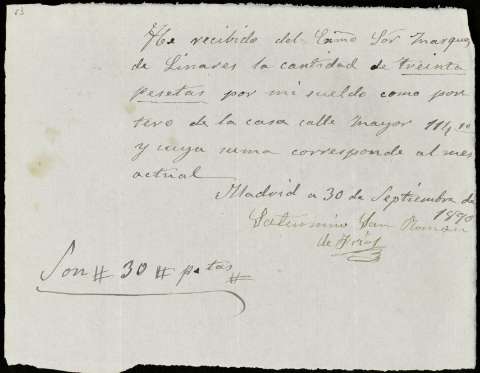 63
He recibido del Exmo Sor Marques
de Linares la cantidad de treinta
pesetas por mi sueldo como por
tero de la casa calle Mayor 114
y cuya suma corresponde al mes
actual
Madrid a 30 de Septiembre de
1890
Saturnino San Roman
de Frias
Son # 30 # ptas #